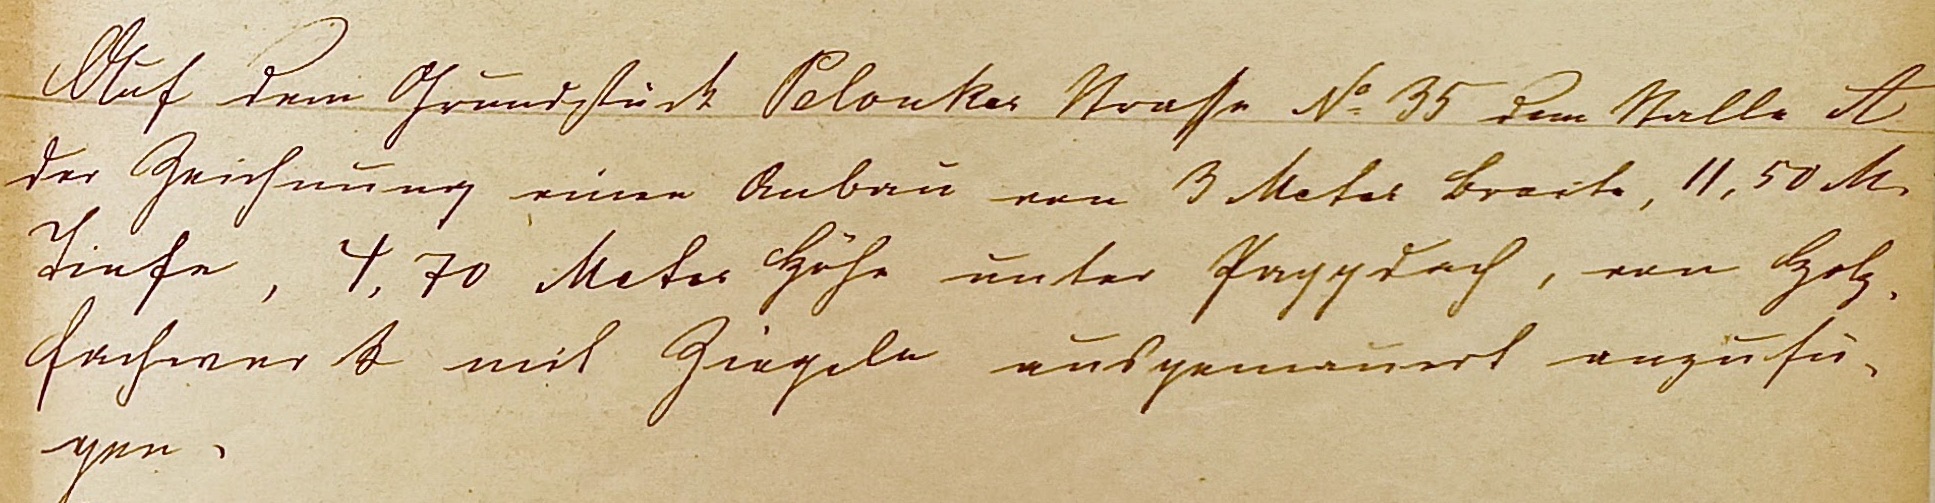 Auf dem Grundstück Pelonker Strasse No 35 dem Stalle A
der Zeichnung einen Anbau von 3 Meter Breite, 11,50 M.
Tiefe, 4,70 Meter Höhe unter Pappdach, von Holz-
fachwerk mit Ziegeln ausgemauert anzufü-
gen.